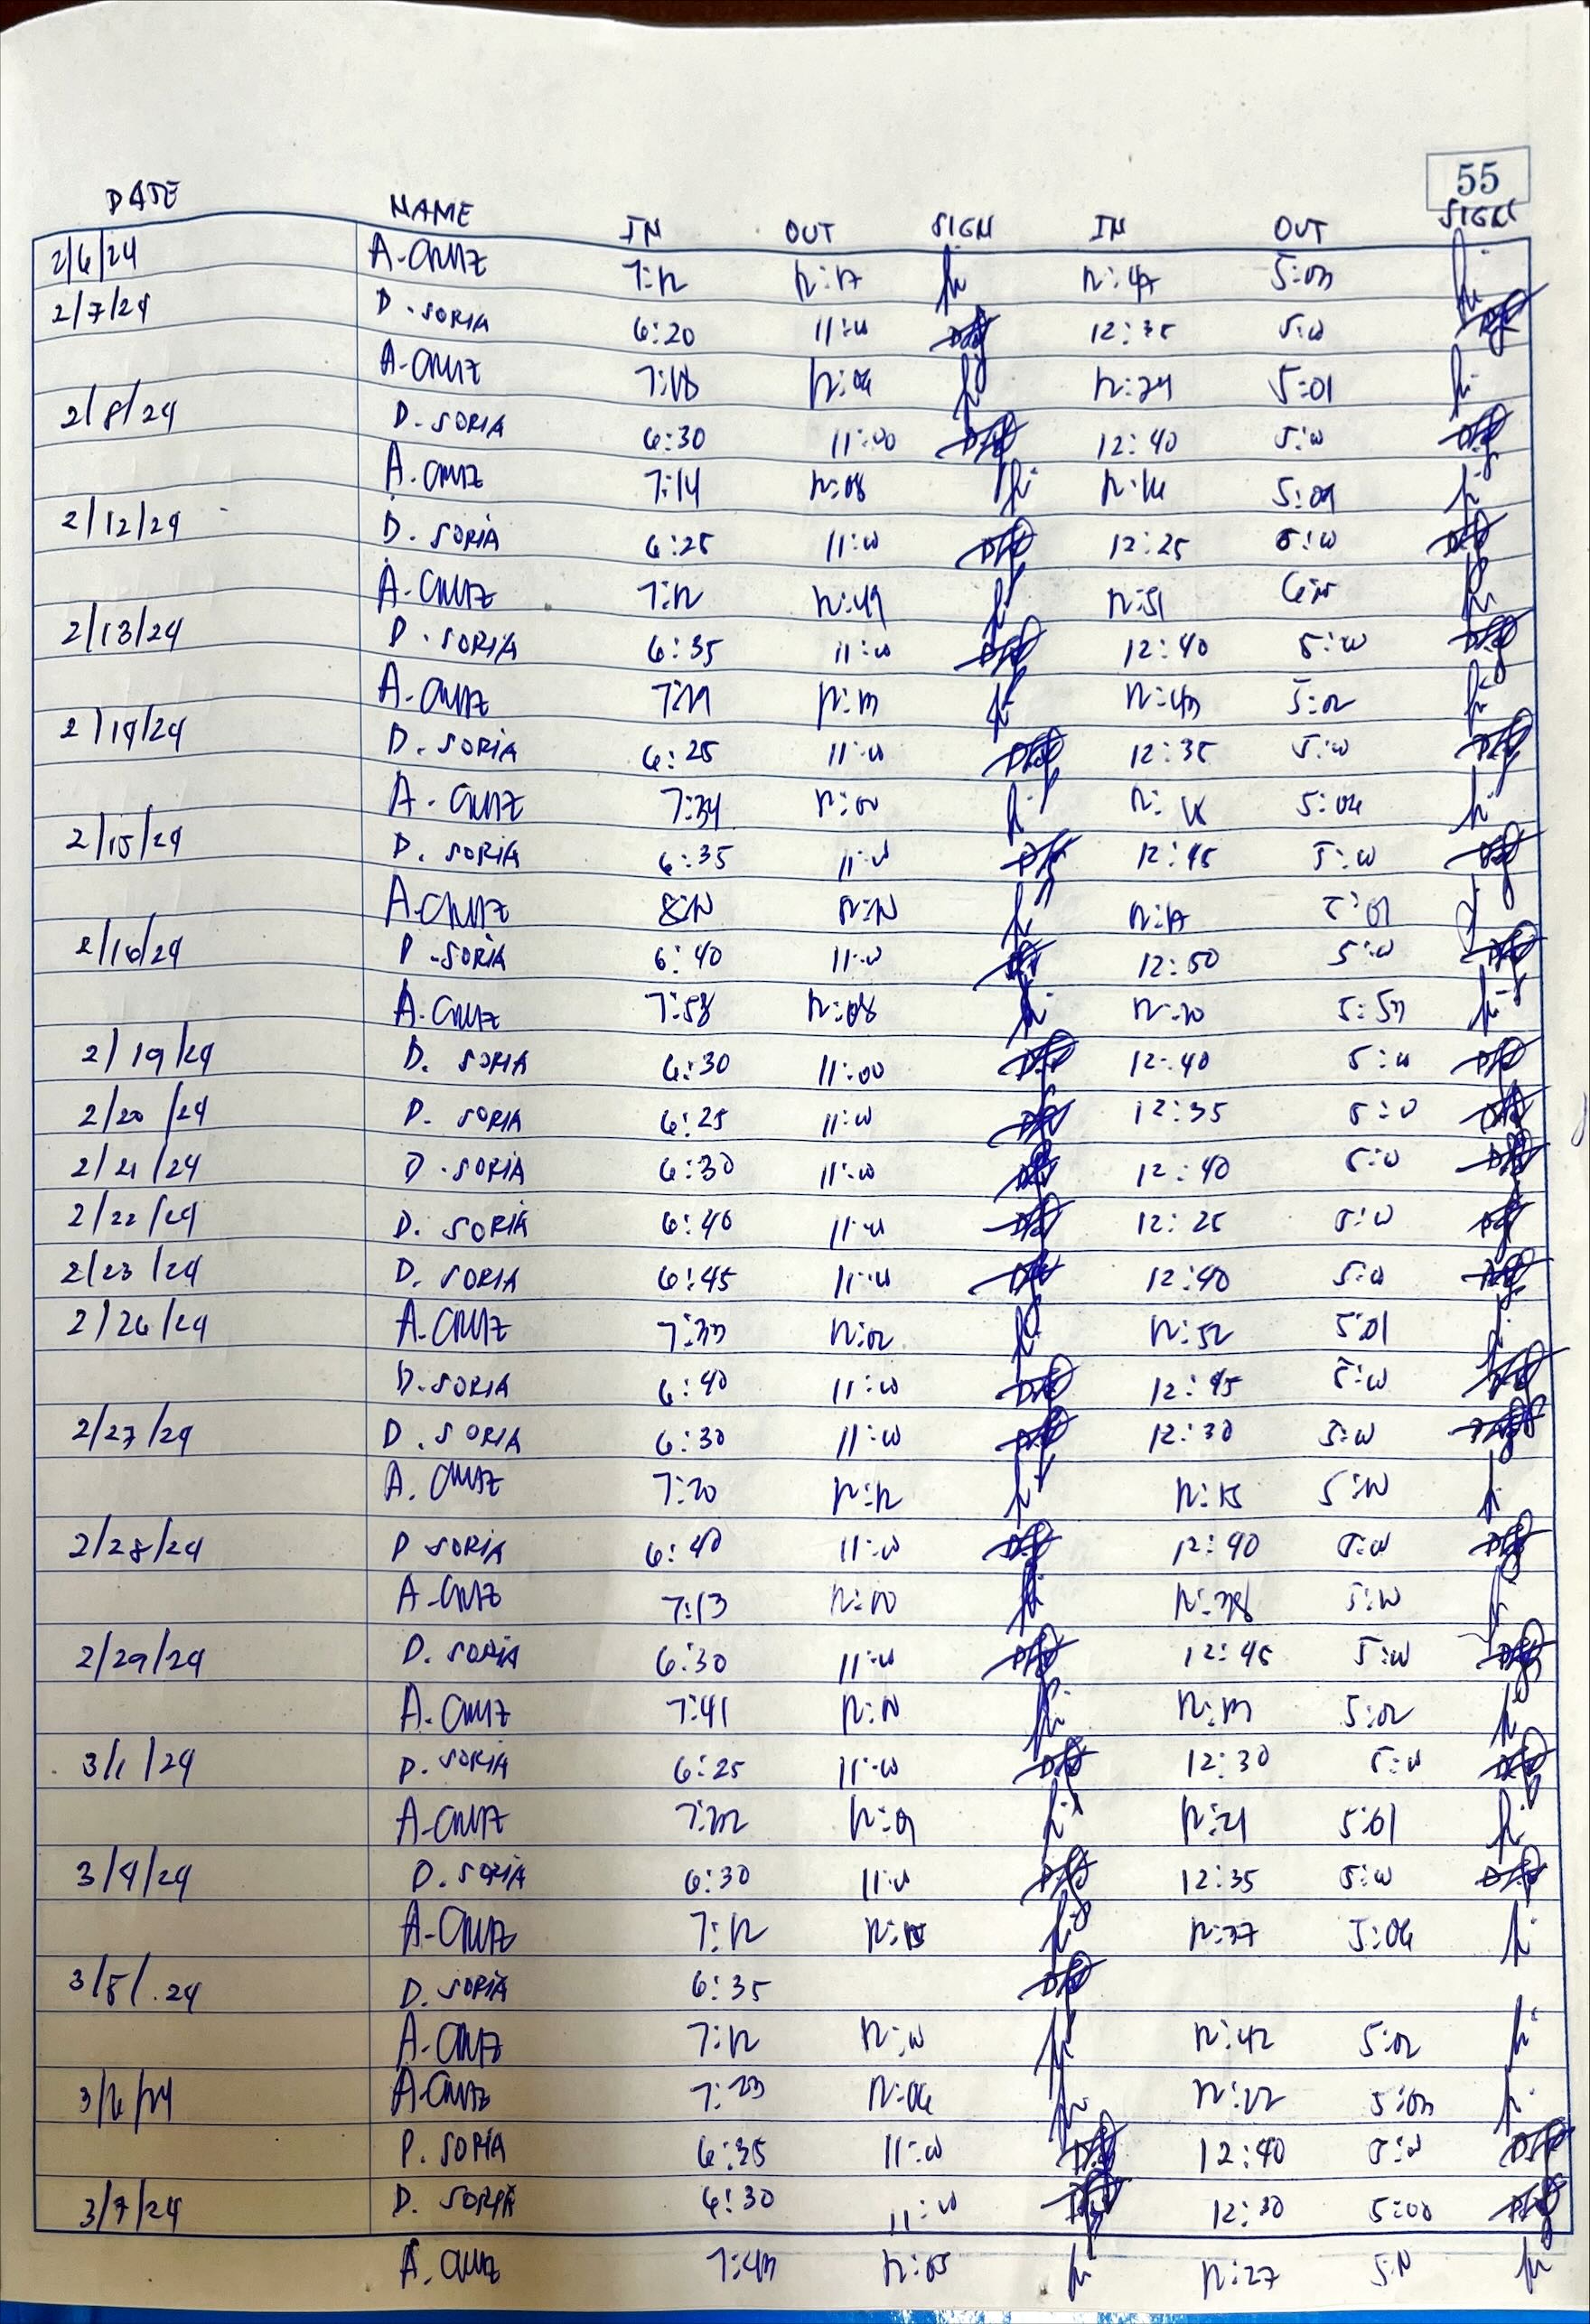 55
DATE NAME IN OUT SIGN IN OUT SIGN
2/6/24 A. CRUZ 7:12 12:17 12:47 5:03
2/7/24 D. SORIA 6:20 11:00 12:35 5:00
A. CRUZ 7:18 12:06 12:24 5:01
2/8/24 D. SORIA 6:30 11:00 12:40 5:00
A. CRUZ 7:14 12:08 12:16 5:09
2/12/24 D. SORIA 6:25 11:00 12:25 5:00
A. CRUZ 7:12 12:49 12:51
2/13/24 D. SORIA 6:35 11:00 12:40 5:00
A. CRUZ 12:13 12:43 5:02
2/14/24 D. SORIA 6:25 11:00 12:35 5:00
A. CRUZ 7:34 12:00 5:06
2/15/24 D. SORIA 6:35 11:00 12:45 5:00
A. CRUZ 12:17
2/16/24 D. SORIA 6:40 11:00 12:50 5:00
A. CRUZ 7:58 12:08 12:20 5:53
2/19/24 D. SORIA 6:30 11:00 12:40 5:00
2/20/24 D. SORIA 6:25 11:00 12:35 5:00
2/21/24 D. SORIA 6:30 11:00 12:40 5:00
2/22/24 D. SORIA 6:40 11:00 12:25 5:00
2/23/24 D. SORIA 6:45 11:00 12:40 5:00
2/26/24 A. CRUZ 7:33 12:02 12:52 5:01
D. SORIA 6:40 11:00 12:45 5:00
2/27/24 D. SORIA 6:30 11:00 12:30 5:00
A. CRUZ 7:20 12:12 12:15
2/28/24 D. SORIA 6:40 11:00 12:40 5:00
A. CRUZ 7:13 12:10 12:38
2/29/24 D. SORIA 6:30 11:00 12:45 5:00
A. CRUZ 7:41 12:10 12:13 5:02
3/1/24 D. SORIA 6:25 11:00 12:30 5:00
A. CRUZ 12:09 12:21 5:01
3/4/24 D. SORIA 6:30 11:00 12:35 5:00
A. CRUZ 7:12 12:37 5:06
3/5/24 D. SORIA 6:35
A. CRUZ 7:12 12:10 12:42 5:02
3/6/24 A. CRUZ 7:23 12:06 12:22 5:03
D. SORIA 6:35 11:00 12:40 5:00
3/7/24 D. SORIA 6:30 11:00 12:30 5:00
A. CRUZ 7:43 12:05 12:27